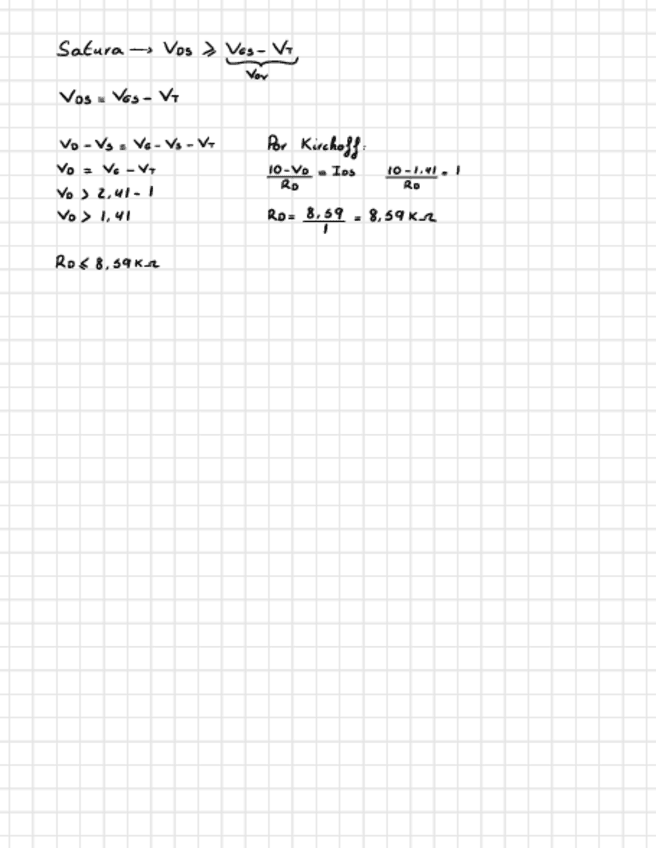 Satura → VDS ⩾ VGS - VT
Vov
VDS = VGS - VT
VD - VS = VG - VS - VT
VD = VG - VT
VD > 2,41 - 1
VD > 1,41
RD ⩽ 8,59 KΩ
Por Kirchoff:
10-VD / RD = IDS    10-1,41 / RD = 1
RD = 8,59 / 1 = 8,59 KΩ